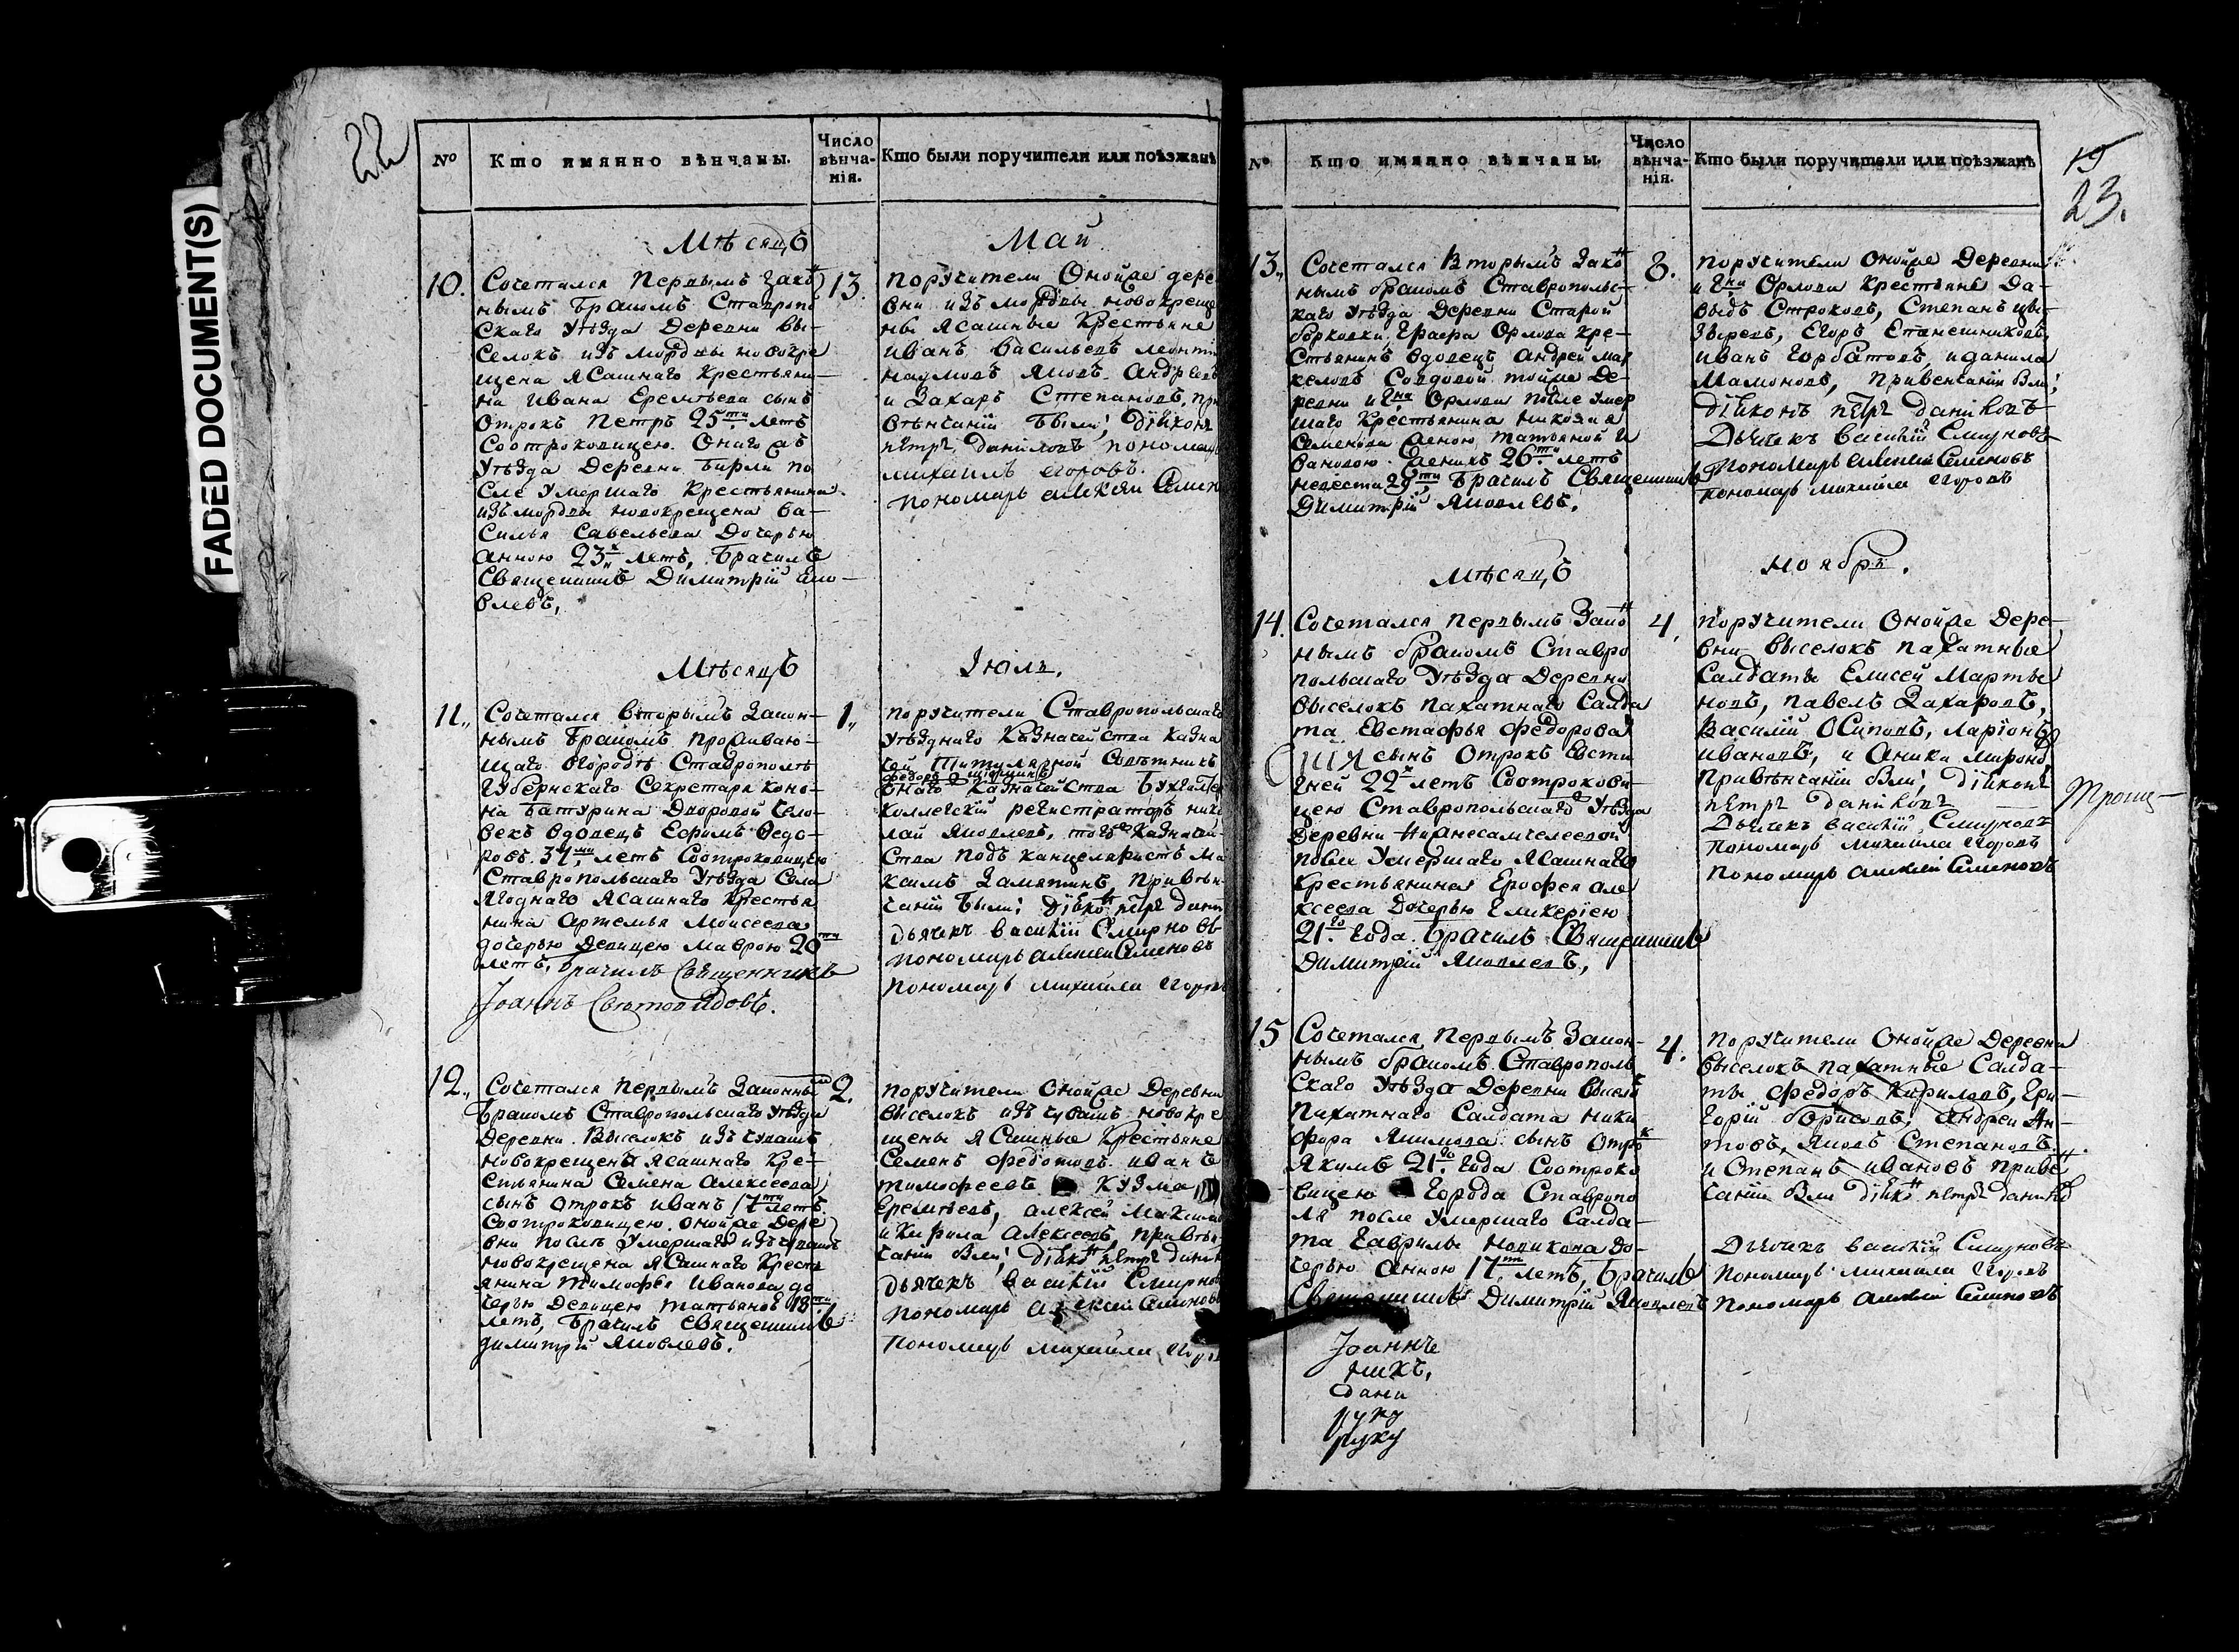 22
FADED DOCUMENT(S)
№
Кто имянно вѣнчаны.
Число
вѣнча-
нія.
Кто были поручители или поѣзжанѣ
Мѣсяцъ
Май
10.
Сочетался Первымъ Закон
нымъ Бракомъ Ставропо
Скаго Уѣзда Деревни Вы-
Селокъ изъ мордвы новокре
щена ясашнаго Крестьяни-
на Ивана Еремѣева сынъ
Отрокъ Петръ 25ти лѣтъ
Соотроковицею Онаго жъ
Уѣзда Деревни Бирли по
Сле Умершаго Крестьянина
изъ мордвы новокрещена Ва-
Силья Савельева Дочерью
Анною 23х летъ, Брачилъ
Священникъ Димитрій Яко-
влевъ,
13.
поручители Онойже дере
вни изъ мордвы новокреще
ны Ясашные Крестьяне
Иванъ Васильевъ леонти
наумовъ Яковъ Андреевъ
и Захаръ Степановъ, при
Вѣнчаніи Были; діяконъ
петръ даниловъ пономарь
михаилъ егоровъ.
пономарь алексеи Семен
Мѣсяцъ
Іюль.
11.
Сочетался Вторымъ Закон-
нымъ Бракомъ проживаю-
щаго Вгородѣ Ставрополѣ
Губернскаго Секретаря Коно-
на Батурина Дворовой Чело-
векъ Вдовецъ Ефимъ Федо-
ровъ 37ми летъ Соотроковицею
Ставропольскаго Уѣзда Села
Ягоднаго Ясашнаго Крестья
нина Артемья Моисеева
дочерью Девицею Маврою 20ти
летъ, Брачилъ Священникъ
Іоаннъ Световидовъ.
1.
поручители Ставропольскаго
Уѣзднаго Казначейства Казна
чей Титулярной Советникъ
онаго Казначейства Бухгалтер
коллегскій регистраторъ нико
лай Яковлевъ, тогожъ Казначей-
Ства подъ канцеляристъ Ма
ксимъ Замятинъ, привѣн-
чаніи Были; Діяконъ петръ дани
дьячекъ василій Смирновъ
пономарь алексеи Семеновъ
пономарь михаила егоров
12.
Сочетался Первымъ Законным
Бракомъ Ставропольскаго Уѣзда
Деревни Выселокъ изъ чувашъ
новокрещена Ясашнаго Кре-
стьянина Семена Алексеева
сынъ Отрокъ Иванъ 17ти летъ
Соотроковицею, онойже Дере
вни послѣ Умершаго изъ чувашъ
новокрещена ясашнаго Кресть
янина Тимофея Иванова до
черью Девицею татьяной 18ти
летъ, Брачилъ Священникъ
димитрій Яковлевъ.
2.
поручители Онойже Деревни
Выселокъ изъ чувашъ новокре
щены ясашные Крестьяне
Семенъ Федотовъ иванъ
тимофеевъ КУЗма
Еремѣевъ, алексеи Максим
и Кирила Алексеевъ, привѣн-
чаніи Были; діяконъ петръ дани
дьячекъ Василій Смирнов
пономарь алексеи Семеновъ
пономарь михаила егор
19
23.
№
Кто имянно вѣнчаны.
Число
вѣнча-
нія.
Кто были поручители или поѣзжанѣ
13.
Сочетался Вторымъ Закон
нымъ бракомъ Ставрополь-
скаго уѣзда Деревни Старой
борковки, Графа Орлова кре-
Стьянинъ Вдовецъ Андрей мар
келовъ Совдовой тойже Де-
ревни и Орлова После умер
шаго Крестьянина николая
Семенова женою татьяной И
вановою. женихъ 26ти летъ
невеста 29ти, Брачилъ Священникъ
Димитрій Яковлевъ,
8.
поручители Онойже Деревни
и Орлова Крестьяне Да-
выдъ Строковъ, Степанъ
Егоръ
иванъ Горбатовъ, иданила
Мамоновъ, Привенчаніи Были;
діяконъ петръ даниловъ
Дьячекъ василій Смирновъ
пономарь алексеи Семеновъ
пономарь михаила егоровъ
Мѣсяцъ
ноябрь.
14.
Сочетался первымъ Закон
нымъ бракомъ Ставро
польскаго Уѣзда Деревни
выселокъ пахатнаго Салда
та Евстафья Федорова
сынъ Отрокъ Евсти
гней 22х летъ Соотрокови
цею Ставропольскаго Уѣзда
деревни
после Умершаго Ясашнаго
Крестьянина Ерофея але
ксеева Дочерью Гликеріею
21го Года. Брачилъ Священникъ
Димитрій Яковлевъ,
4.
поручители Онойже Дере
вни выселокъ пахатные
Салдаты Елисей Марты
новъ, павелъ Захаровъ,
Василій Осиповъ, Ларіонъ
ивановъ, и Аника миронов
Привѣнчаніи были; діяконъ
петръ даниловъ
Дьячекъ василій Смирновъ
пономарь михаила егоровъ
пономарь алексеи Семеновъ
15
Сочетался, первымъ Закон-
нымъ бракомъ Ставрополь
Скаго Уѣзда Деревни высело
пахатнаго Салдата Ники
фора Якимова сынъ Отрок
Якимъ 21го Года Соотроко
вицею Города Ставропо
ля после умершаго Салда-
та Гаврилы новикова до-
черью Анною 17ти летъ, Брачилъ
Священникъ Димитрій Яковлевъ
4.
поручители Онойже Деревни
выселокъ пахатные Салда-
ты Федоръ Кириловъ, Гри-
горій борисовъ, Андреи Ан-
товъ, Яковъ Степановъ
и Степанъ ивановъ привен
чаніи были діяконъ петръ данилов
Дьячекъ василій Смирновъ
пономарь михаила егоровъ
пономарь алексеи Семеновъ
Іоаннъ
никъ,
дани
руку
руку